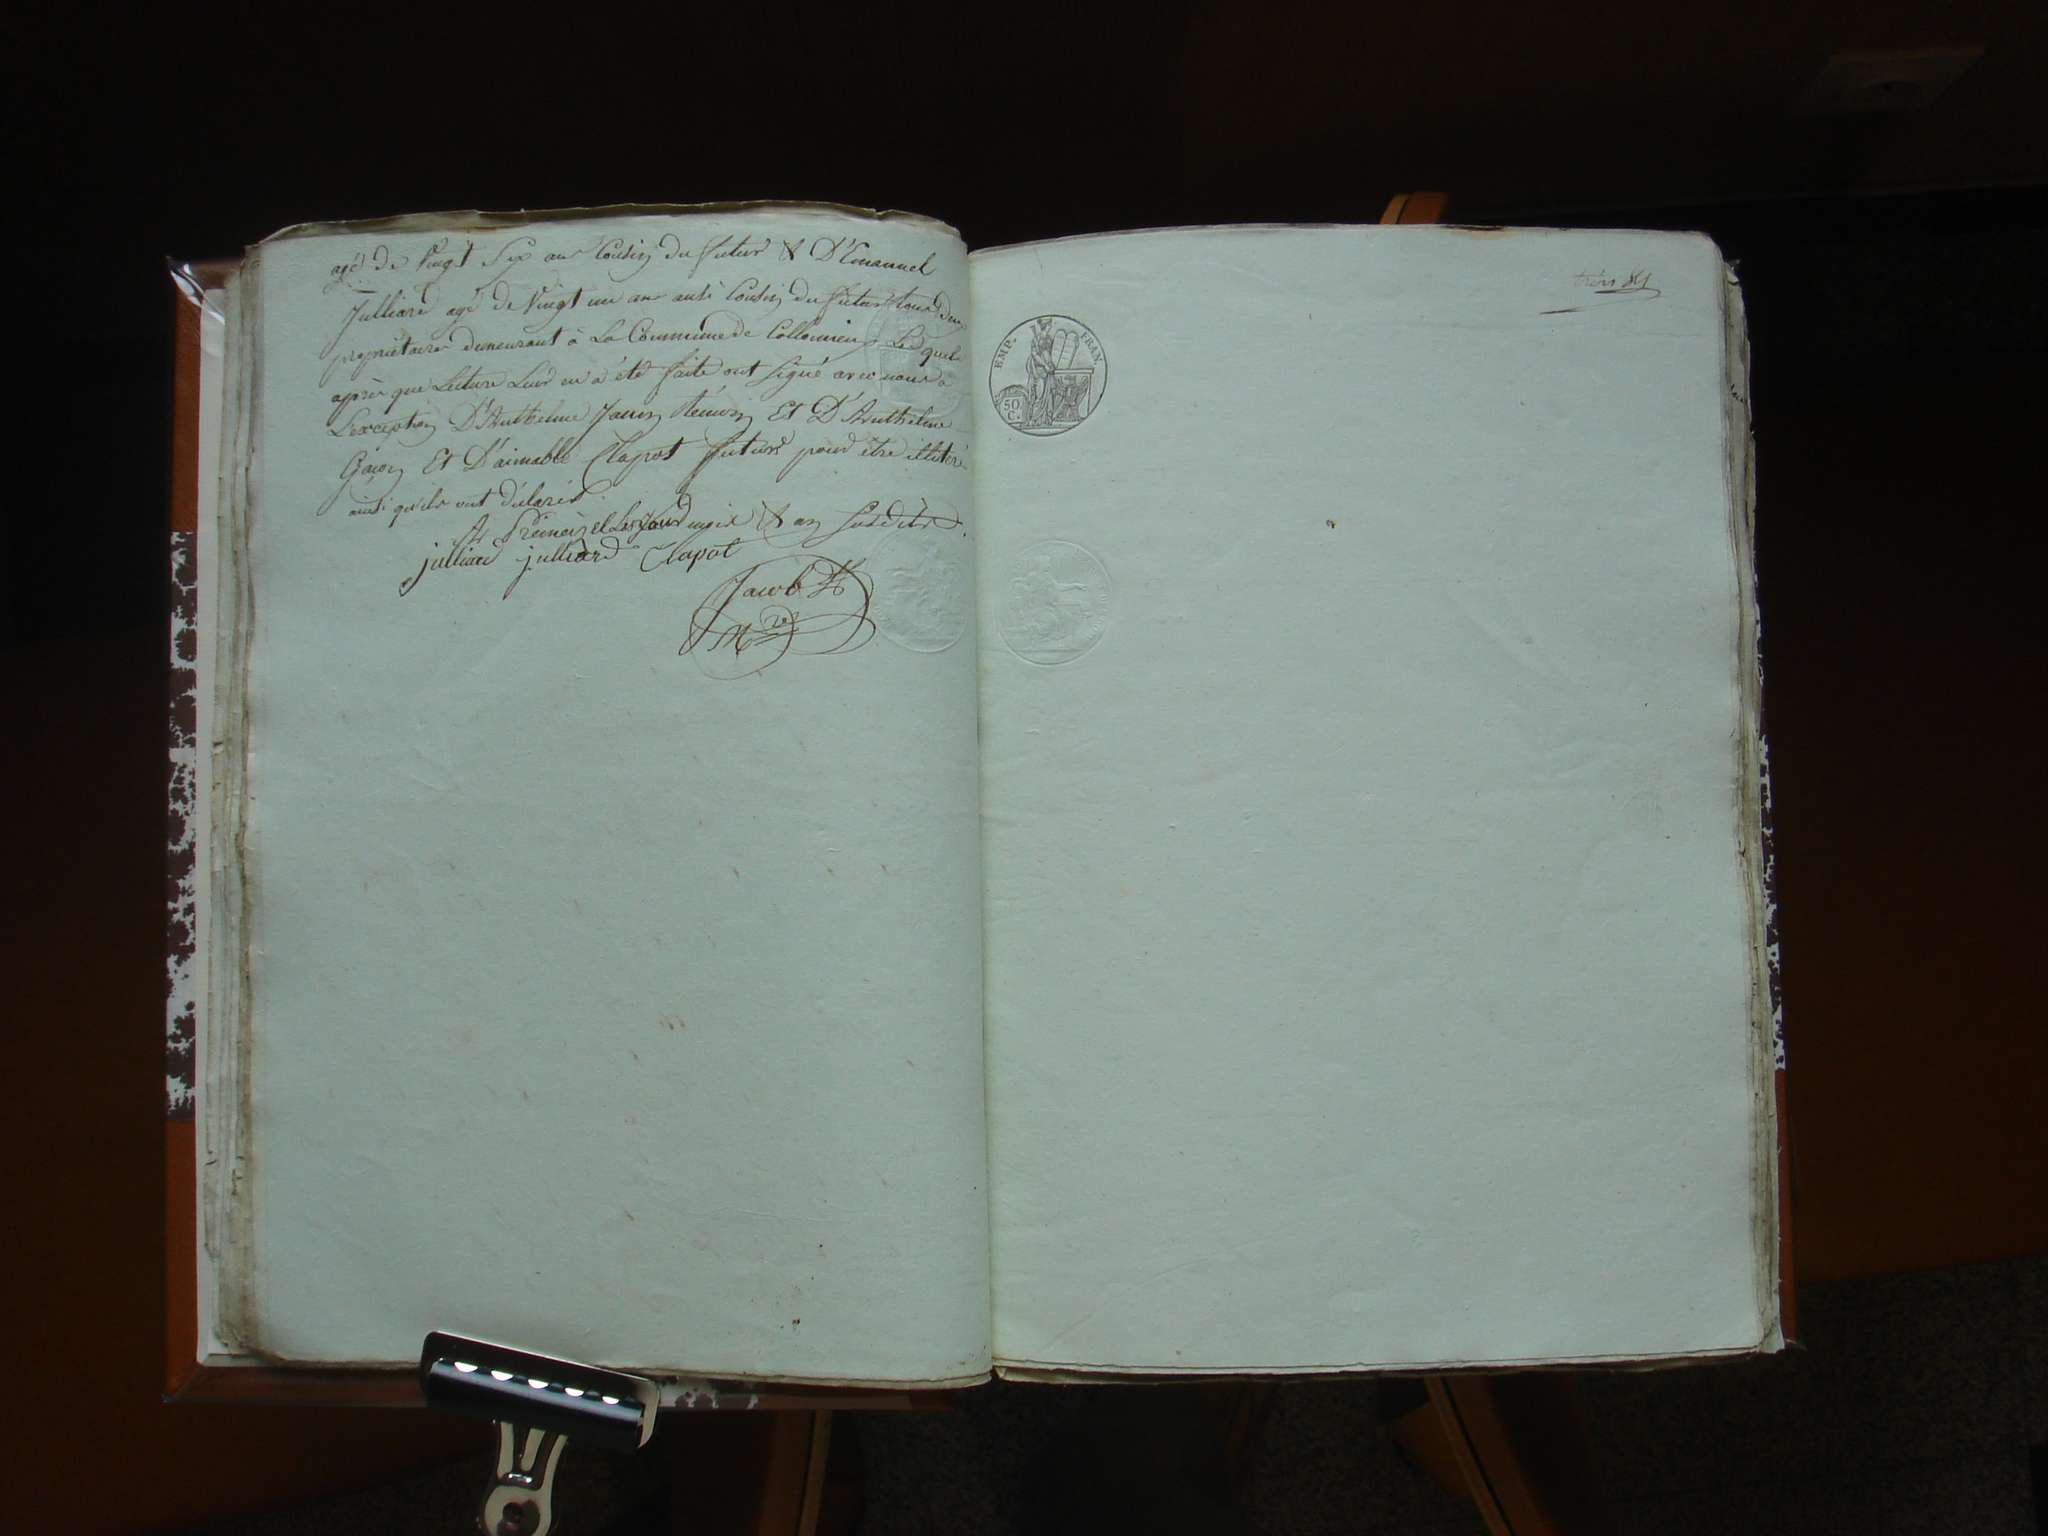 agé de Vingt Six ans Cousin du futur & D'Emanuel
Julliard agé de Vingt un ans ausi Cousin du futur tous deux
propriétaires demeurant à La Commune de Collomieu Les quels
après que Lecture Leur en a été faite ont signé avec nous a
L'exception D'Anthelme Janin témoin Et D'Anthelme
Gavin Et D'aimable Clapot futurs pour être illiteré
ainsi qu'ils ont déclaré.
julliard julliard Clapot
Jacob
EMP. FRAN.
50
C.